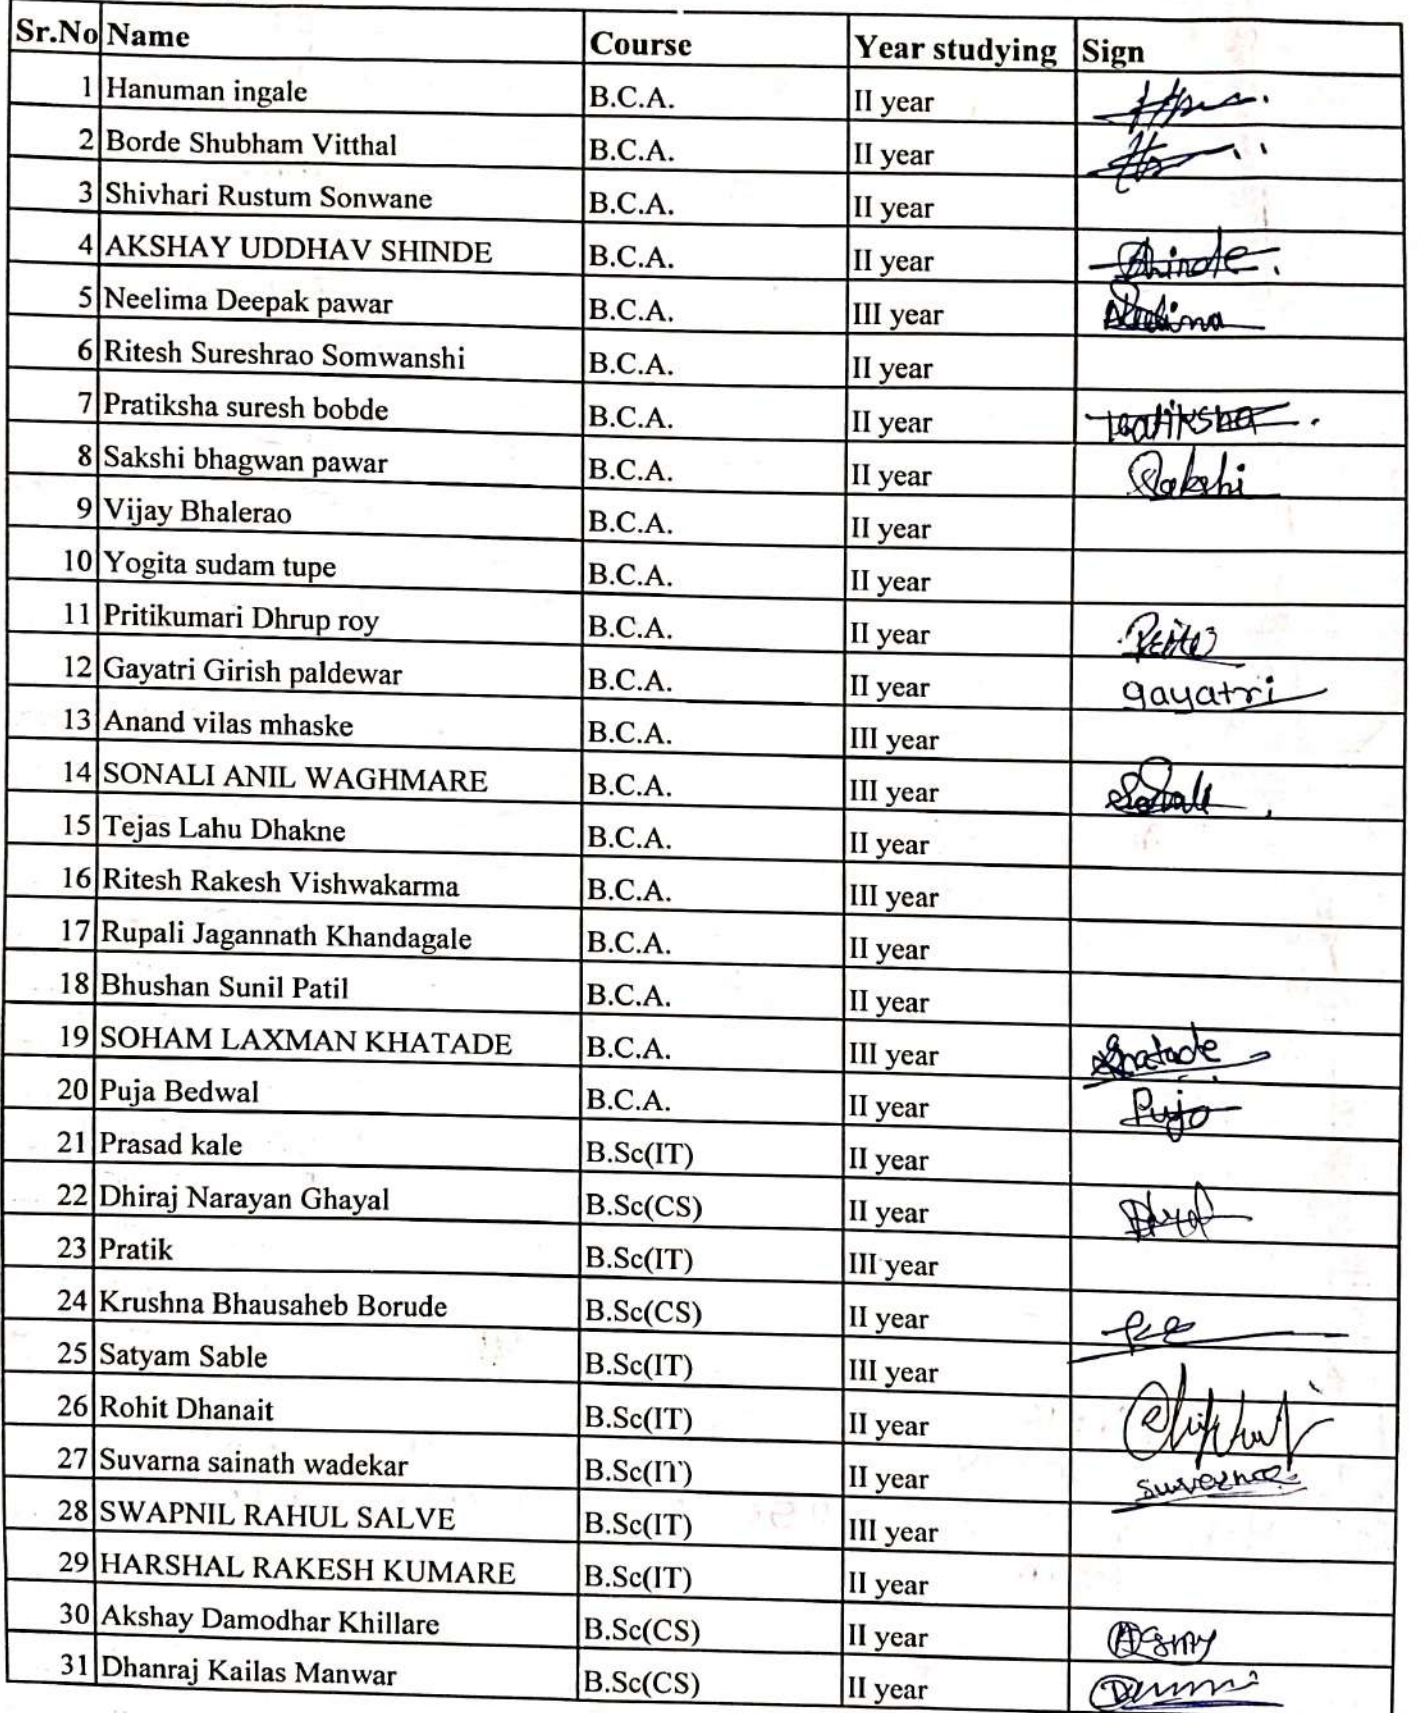 Sr.No Name Course Year studying Sign
1 Hanuman ingale B.C.A. II year
2 Borde Shubham Vitthal B.C.A. II year
3 Shivhari Rustum Sonwane B.C.A. II year
4 AKSHAY UDDHAV SHINDE B.C.A. II year Shinde
5 Neelima Deepak pawar B.C.A. III year Neelima
6 Ritesh Sureshrao Somwanshi B.C.A. II year
7 Pratiksha suresh bobde B.C.A. II year Pratiksha
8 Sakshi bhagwan pawar B.C.A. II year Sakshi
9 Vijay Bhalerao B.C.A. II year
10 Yogita sudam tupe B.C.A. II year
11 Pritikumari Dhrup roy B.C.A. II year
12 Gayatri Girish paldewar B.C.A. II year gayatri
13 Anand vilas mhaske B.C.A. III year
14 SONALI ANIL WAGHMARE B.C.A. III year Sonali
15 Tejas Lahu Dhakne B.C.A. II year
16 Ritesh Rakesh Vishwakarma B.C.A. III year
17 Rupali Jagannath Khandagale B.C.A. II year
18 Bhushan Sunil Patil B.C.A. II year
19 SOHAM LAXMAN KHATADE B.C.A. III year Khatade
20 Puja Bedwal B.C.A. II year Puja
21 Prasad kale B.Sc(IT) II year
22 Dhiraj Narayan Ghayal B.Sc(CS) II year
23 Pratik B.Sc(IT) III year
24 Krushna Bhausaheb Borude B.Sc(CS) II year
25 Satyam Sable B.Sc(IT) III year
26 Rohit Dhanait B.Sc(IT) II year
27 Suvarna sainath wadekar B.Sc(IT) II year Suvarna
28 SWAPNIL RAHUL SALVE B.Sc(IT) III year
29 HARSHAL RAKESH KUMARE B.Sc(IT) II year
30 Akshay Damodhar Khillare B.Sc(CS) II year
31 Dhanraj Kailas Manwar B.Sc(CS) II year